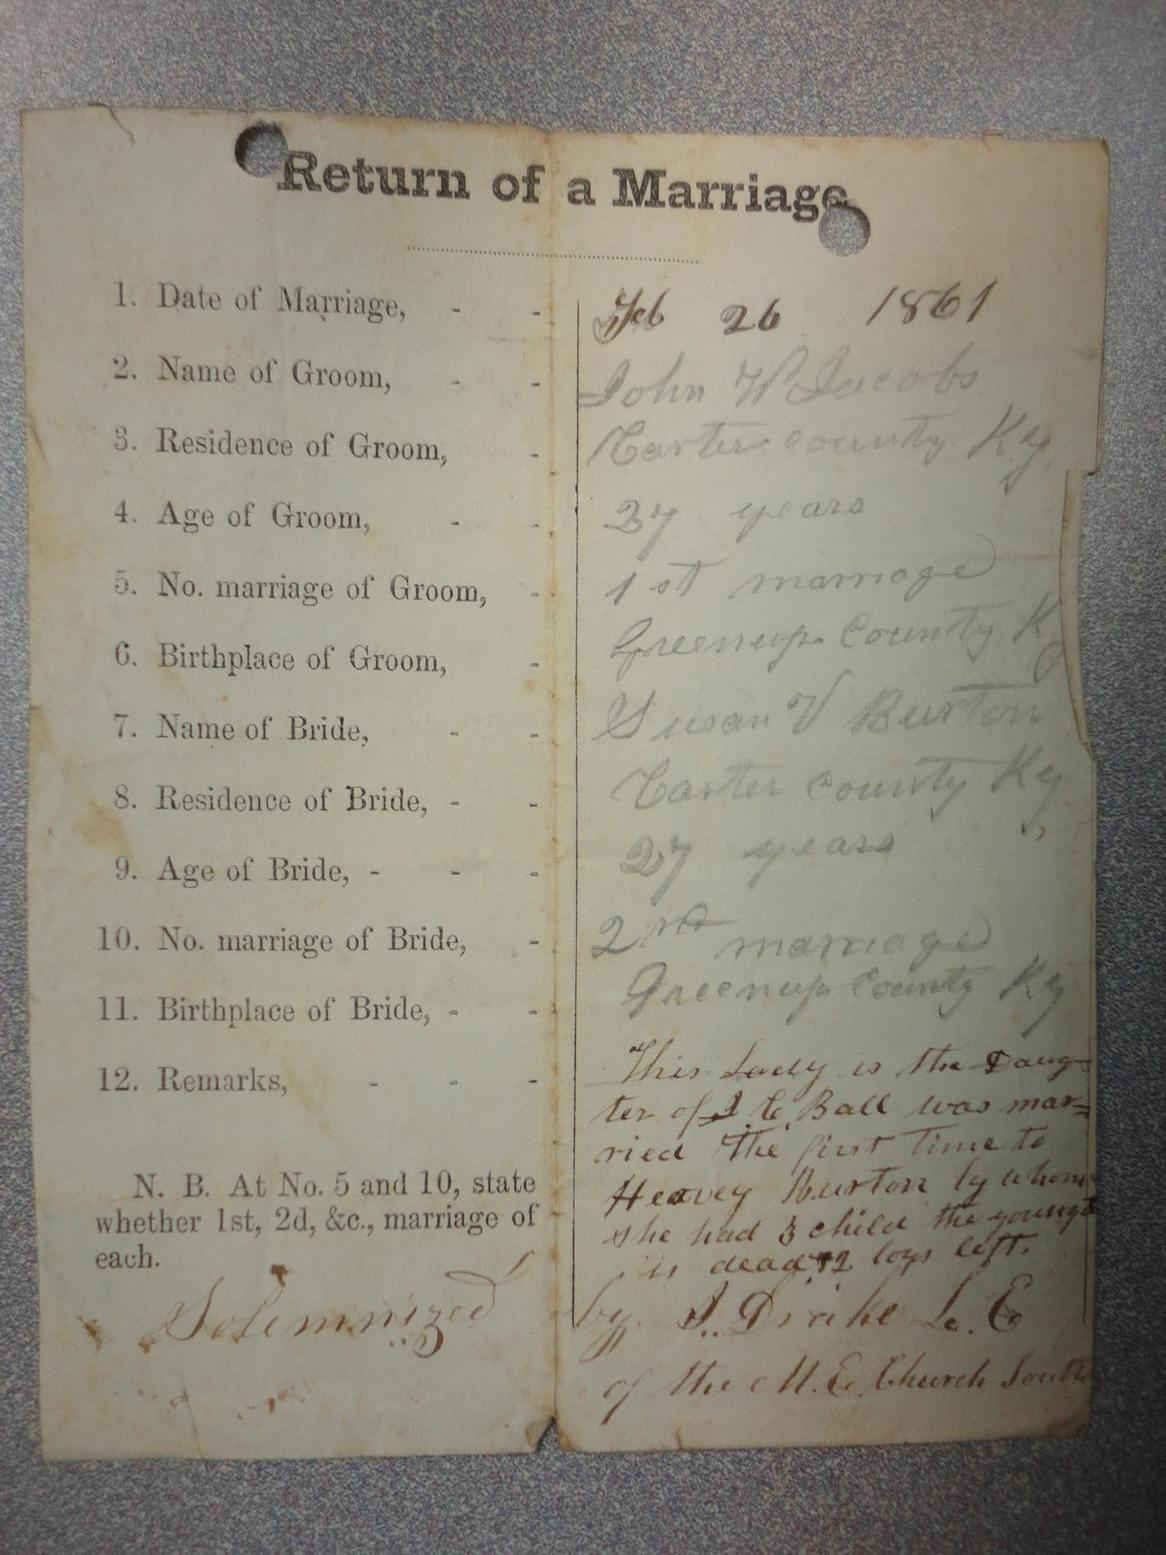 Return of a Marriage
1. Date of Marriage, - - Feb 26 1861
2. Name of Groom, - - John W Jacobs
3. Residence of Groom, - Carter county Ky
4. Age of Groom, - - 27 years
5. No. marriage of Groom, - 1st marriage
6. Birthplace of Groom, - Greenup County Ky
7. Name of Bride, - - Susan V Burton
8. Residence of Bride, - - Carter county Ky
9. Age of Bride, - - - 27 years
10. No. marriage of Bride, - 2nd marriage
11. Birthplace of Bride, - - Greenup County Ky
12. Remarks, - - - This Lady is the Daug-
ter of J. C. Ball was mar=
ried the first time to
Heavey Burton by whom
she had 3 child the youngst
is dead + 2 boys left.
N. B. At No. 5 and 10, state
whether 1st, 2d, &c., marriage of
each.
Solemnized by J. Drake L. E
of the M. E. Church South